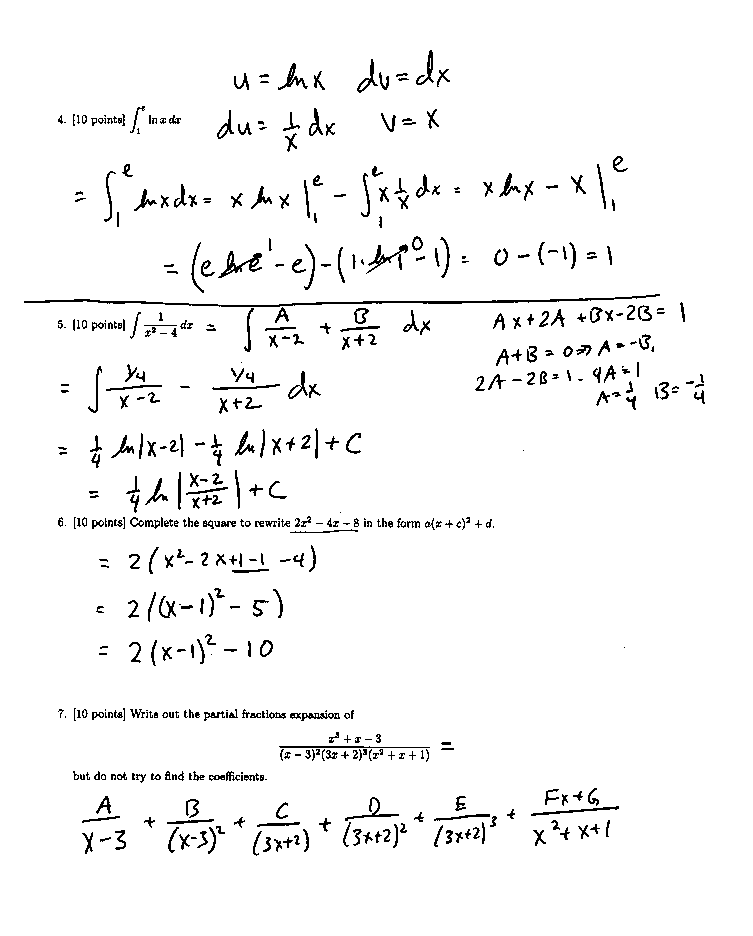 u = ln x   dv = dx
4. [10 points] ∫₁ᵉ ln x dx   du = 1/x dx   v = x
= ∫₁ᵉ ln x dx = x ln x |₁ᵉ − ∫₁ᵉ x 1/x dx = x ln x − x |₁ᵉ
= (e ln e¹ − e) − (1·ln 1⁰ − 1) = 0 − (−1) = 1
5. [10 points] ∫ 1/(x² − 4) dx = ∫ A/(x−2) + B/(x+2) dx   Ax + 2A + Bx − 2B = 1
A + B = 0 ⇒ A = −B,
= ∫ (1/4)/(x−2) − (1/4)/(x+2) dx   2A − 2B = 1 . 4A = 1
A = 1/4   B = −1/4
= 1/4 ln|x−2| − 1/4 ln|x+2| + C
= 1/4 ln |(x−2)/(x+2)| + C
6. [10 points] Complete the square to rewrite 2x² − 4x − 8 in the form a(x + c)² + d.
= 2(x² − 2x + 1 − 1 − 4)
= 2((x−1)² − 5)
= 2(x−1)² − 10
7. [10 points] Write out the partial fractions expansion of
(x³ + x − 3)/((x − 3)²(3x + 2)³(x² + x + 1)) =
but do not try to find the coefficients.
A/(x−3) + B/(x−3)² + C/(3x+2) + D/(3x+2)² + E/(3x+2)³ + (Fx+G)/(x²+x+1)